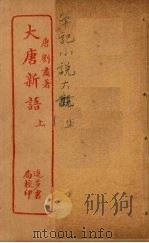 唐劉肅著
大唐新語
上
進步書
局校印
筆記小說大觀